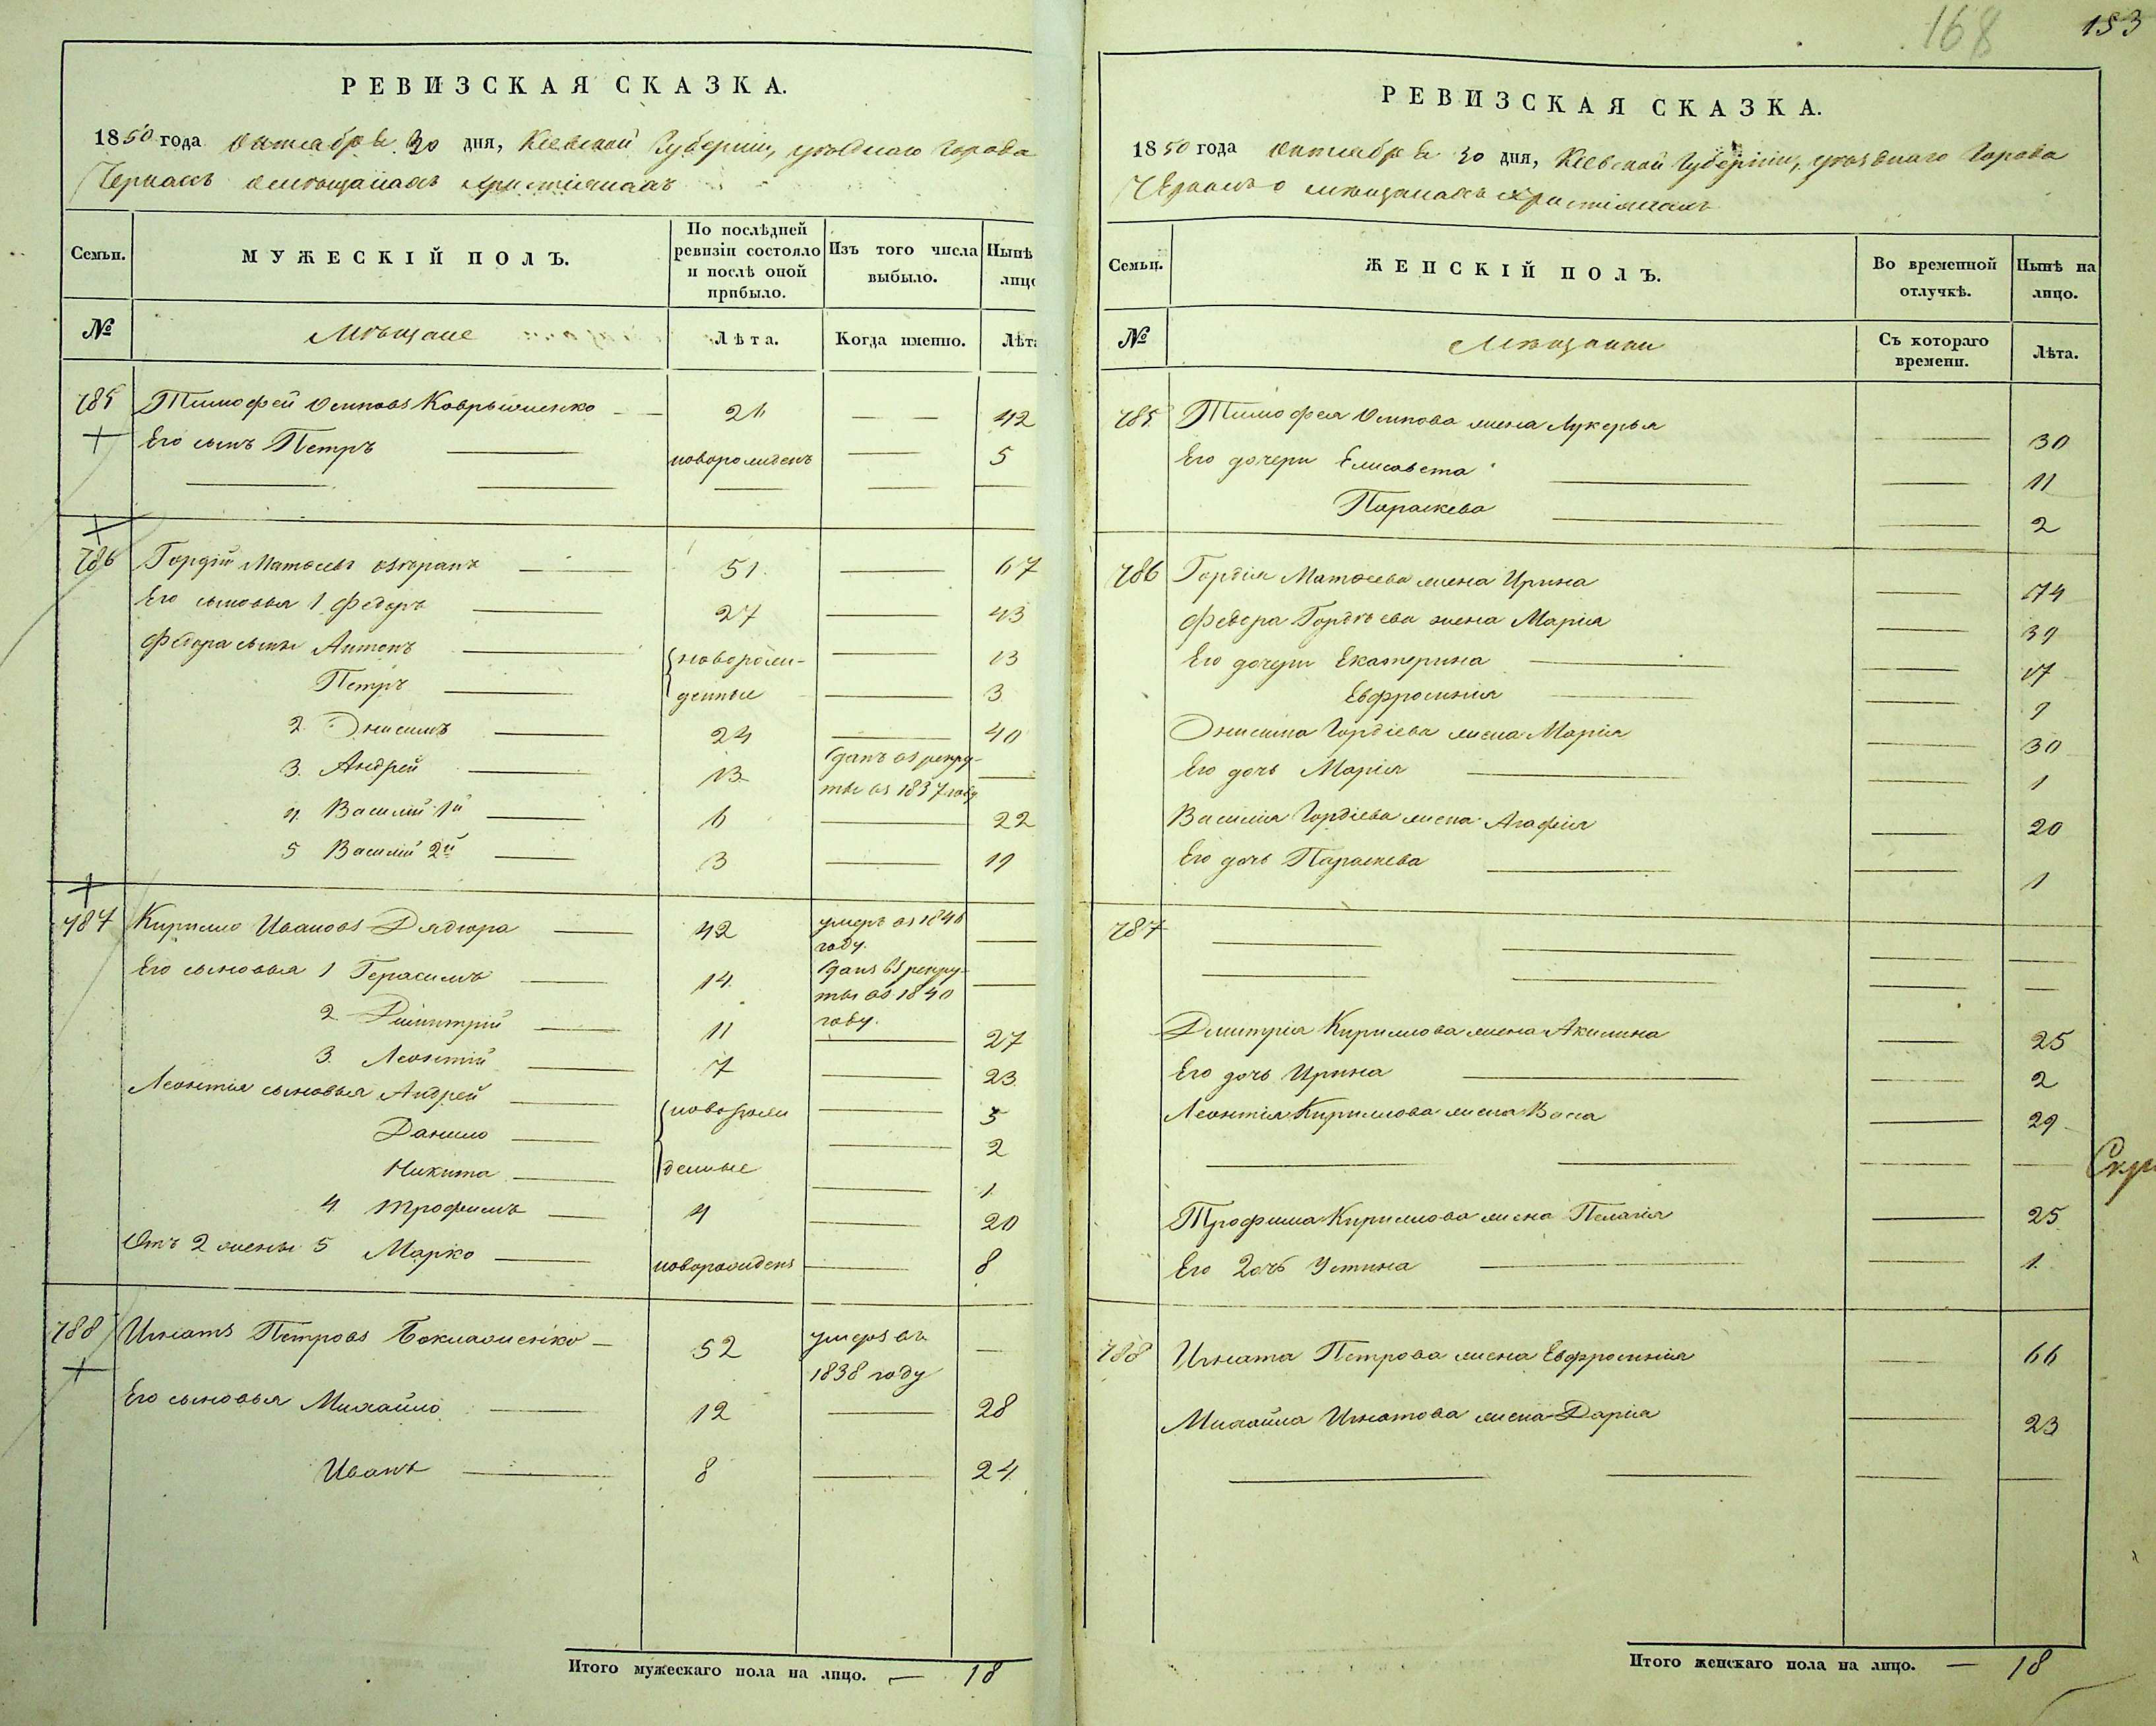 168 153
РЕВИЗСКАЯ СКАЗКА.
1850 года октября 30 дня, Кіевской Губерніи, уѣзднаго Города
Черкасъ о мѣщанахъ христіянахъ
Семьи. МУЖЕСКІЙ ПОЛЪ. По послѣдней ревизіи состояло и послѣ оной прибыло. Изъ того числа выбыло. Нынѣ лицо
№ Мѣщане Лѣта. Когда именно. Лѣта
785 Тимофей Осиповъ 26 — 42
Его сынъ Петръ — новорожденъ — 5
786 Гордій Матвеевъ — 51 — 67
Его сыновья 1 Федоръ — 27 — 43
Федора сыны Антонъ — новорож- — 13
Петръ — денные — 3
2. Онисимъ — 24 — 40
3. Андрей — 13 сданъ въ рекру-
ты въ 1837 году —
4. Василій 1й — 6 — 22
5 Василій 2й — 3 — 19
787 Кирило Ивановъ Дядюра — 42 умеръ въ 1846
году. —
Его сыновья 1 Герасимъ — 14. сданъ въ рекру-
ты въ 1840
году. —
2. Димитрій — 11 — 27
3. Леонтій — 7 — 23
Леонтія сыновья Андрей — новорож — 5
Данило — — 2
Никита — денные — 1
4. Трофимъ — 4 — 20
Отъ 2 жены 5 Марко — новорожденъ — 8
788 Игнатъ Петровъ — 52 умеръ въ
1838 году —
Его сыновья Михайло — 12 — 28
Иванъ — 8 — 24
Итого мужескаго пола на лицо. — 18
РЕВИЗСКАЯ СКАЗКА.
1850 года октября 30 дня, Кіевской Губерніи, уѣзднаго Города
Черкасъ о мѣщанахъ христіянахъ
Семьи. ЖЕНСКІЙ ПОЛЪ. Во временной отлучкѣ. Нынѣ на лицо.
№ Мѣщанки Съ котораго времени. Лѣта.
785 Тимофея Осипова жена Лукерья — 30
Его дочери Елисавета — 11
Параскева — 2
786 Гордія Матвеева жена Ирина — 74
Федора Гордѣева жена Марія — 39
Его дочери Екатерина — 17
Евфросинія — 9
Онисима Гордіева жена Марія — 30
Его дочь Марія — 1
Василія Гордіева жена Агафія — 20
Его дочь Параскева — 1
787 — —
Дмитрія Кирилова жена Акилина — 25
Его дочь Ирина — 2
Леонтія Кирилова жена Васа — 29
— —
Трофима Кирилова жена Пелагія — 25
Его дочь Устина — 1.
788 Игната Петрова жена Евфросинія — 66
Михайла Игнатова жена Дарія — 23
— —
Итого женскаго пола на лицо. — 18